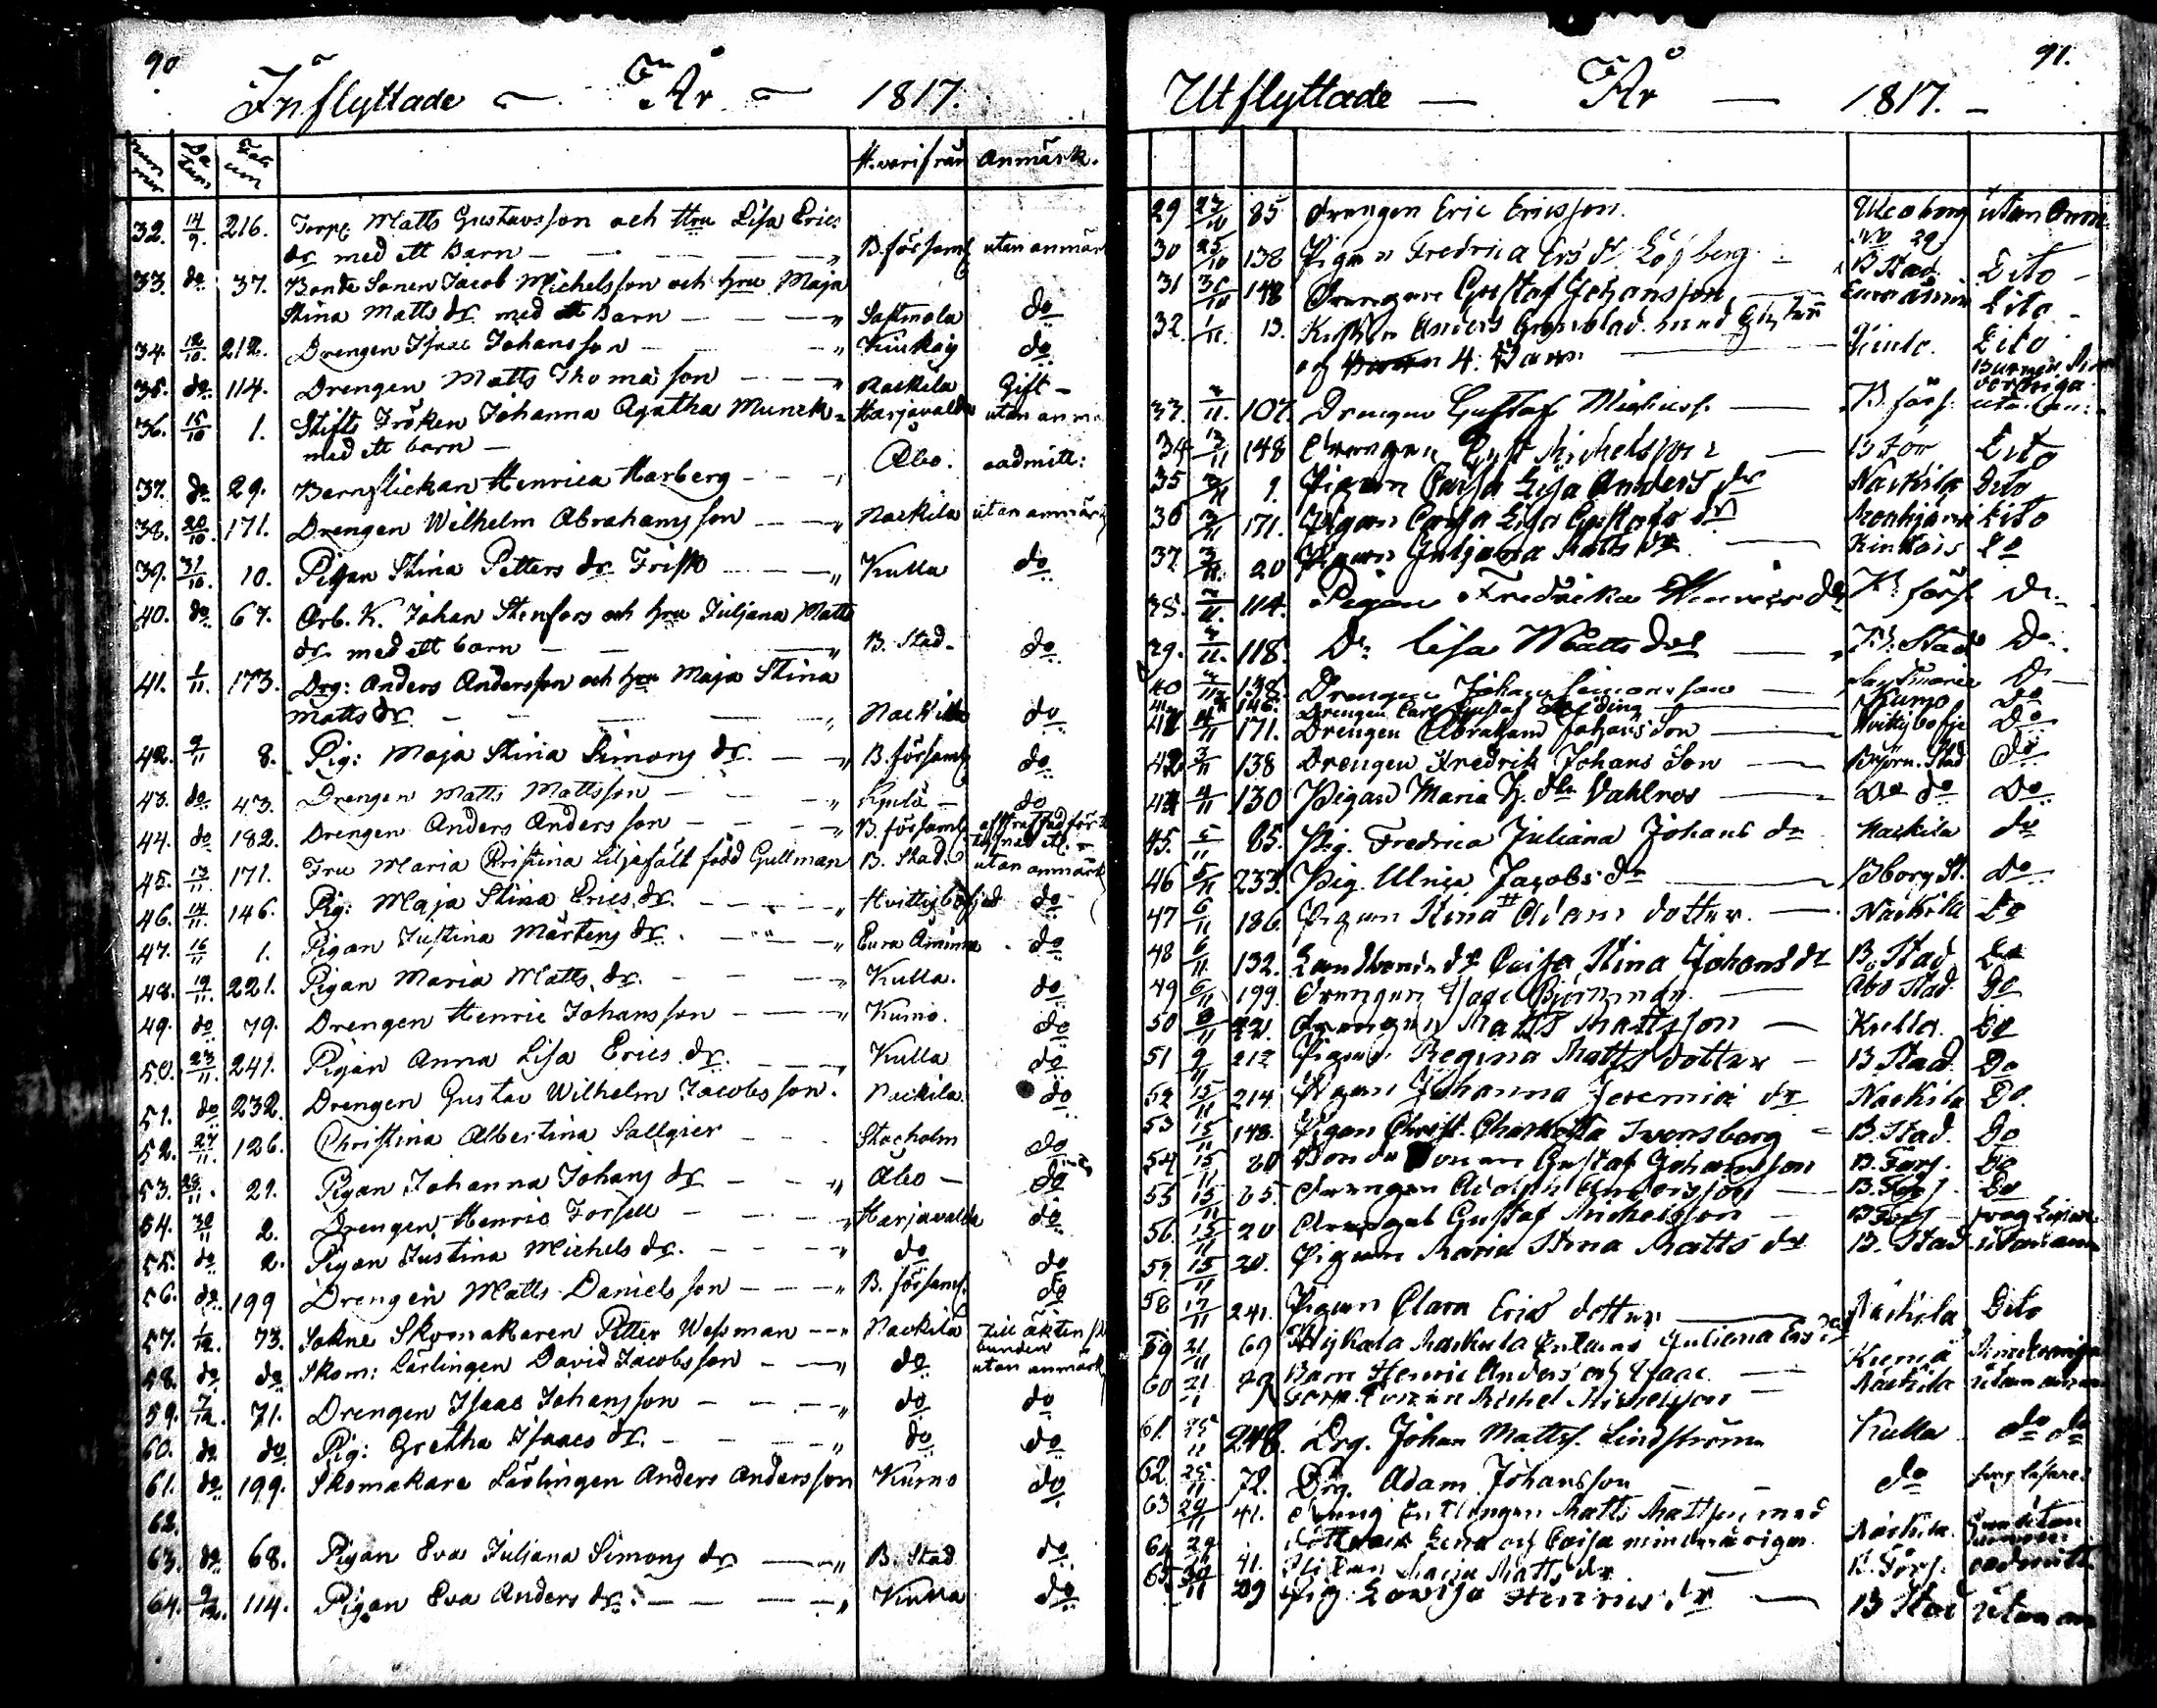 90
Inflyttade — År — 1817.
Num mer Da tum Fol: um Hvarifrån Anmärk.
32. 14/9. 216. Torp: Matts Gustavsson och Hru Lisa Erics
dr med ett Barn — — — — " B. församl utan anmärk
33. do 37. Bonde Sonen Jacob Michelsson och hru Maja
Stina Matts dr med ett Barn — — — " Sastmola do
34. 12/10. 212. Drengen Isaac Johansson — — " Kiukais do
35. do 114. Drengen Matts Thomasson — — — " Nackila Gift —
36. 15/10 1. Stifts Fröken Johanna Agatha Munck " Harjavalda utan anm
med ett barn —
37. do 29. Barnflickan Henrica Harberg — — " Åbo. oadmitt:
38. 20/10. 171. Drengen Wilhelm Abrahamsson — — " Nackila utan anmärk
39. 31/10. 10. Pigan Stina Petters dr Frisk — — " Kulla do
40. do 67. Arb. K. Johan Stenfors och hru Juljana Matts
dr med ett barn — — — " B. Stad. do
41. 1/11. 173. Drg: Anders Andersson och hru Maja Stina
Matts dr. — — — — " Nackila do
42. 9/11 8. Pig: Maja Stina Simons dr. — — " B. församl do
43. do 43. Drengen Matts Mattsson — — — " do
44. do 182. Drengen Anders Andersson — — — " B. församl
45. 13/11. 171. Fru Maria Christina Liljefält född Gullman B. Stad. utan anmärk
46. 14/11. 146. Pig: Maja Stina Erics dr. — — — " Hvittisbofjed do
47. 16/11 1. Pigan Justina Mårtens dr. — — — " Eura Åminne do
48. 19/11. 221. Pigan Maria Matts dr. — — — " Kulla. do
49. do 79. Drengen Henric Johansson — — — " Kumo. do
50. 23/11. 241. Pigan Anna Lisa Erics dr. — — — " Kulla do
51. do 232. Drengen Gustav Wilhelm Jacobsson. Nackila do
52. 27/11. 126. Christina Albertina Sallgrer — — Stocholm do
53. 28/11. 21. Pigan Johanna Johans dr — — " Åbo — do
54. 30/11 2. Drengen Henric Forsell — — — " Harjavalda do
55. do 2. Pigan Justina Michels dr. — — — " do do
56. do. 199 Drengen Matts Danielsson — — — " B. församl do
57. 1/12. 73. Sokne Skomakaren Petter Wessman — — " Nackila till äkten
bunden
58. do do Skom: Lärlingen David Jacobsson — — " do utan anmärk
59. 7/12. 71. Drengen Isaac Johansson — — — " do do
60. do do Pig: Gretha Isaacs dr. — — — " do do
61. do 199. Skomakare Lärlingen Anders Andersson Kumo do
62.
63. do 68. Pigan Eva Juljana Simons dr — — " B. Stad do
64. 9/12. 114. Pigan Eva Anders dr: — — — — " Kulla do
91.
Utflyttade — År — 1817. —
29 23/10 85 Drengen Eric Ericsson. Uleaborg utan Anm.
30 25/10 138 Pigan Fredrica Ers dr Löfberg — B Stad. Dito —
31 148 Drengen Gustaf Johansson Euraåminne Dito —
32. 1/11. 13. Anders Grönblad med
och 4. Barn Dito
33. 2/11. 107. Drengen Gustaf Michelss. — B. förs.
34 3/11 148 Drengen Gust Michelsson — B För Dito
35 3/11 1. Pigan Caisa Lisa Anders dr Nackila Dito
36 3/11 171. Pigan Caisa Lisa Gustafs dr Dito
37 3/11. 20 Pigan Juljana Matts dr — Kiukais Do
38. 3/11. 114. Pigan Fredrika Henrics dr B. förs Do
39. 4/11. 118. Do Lisa Matts dr — B. Stad Do
40 138. Drengen Johan Simonsson — Do
146. Drengen Carl Gustaf Kumo Do
171. Drengen Abraham Johans Son — Hvittisbofje Do
3/11 138 Drengen Fredrik Johans Son — Björn. Stad Do
4/11 130 Pigan Maria H. dr Vahlros — Do do Do
45. 5/11 65. Pig. Fredrica Juliana Johans dr Nackila do
46 5/11 233. Pig. Ulrica Jacobs dr — Bborg St. do
47 6/11 186. Pigan Stina Adams dotter. — Nackila Do
48 6/11. 132. Landbonde dr Caisa Stina Johans dr B. Stad Do
49 6/11 199. Drengen Isaac Björnman. — Åbo Stad. Do
50 22. Drengen Matts Mattsson — Kulla. Do
51 9/11 212 Pigan Regina Matts dotter — B Stad. Do
52 15/11 214 Pigan Johanna Jeremiæ dr Nackila Do.
53 15/11 148. Pigan Christ. Charlotta Ivensberg — B. Stad. Do
54 15/11 20 Bonde Sonen Gustaf Johansson B. Förs. Do
55 15/11 65. Drengen Adolph Andersson — B. Förs. Do
56. 15/11 20 Drengen Gustaf Michelsson — B Förs —
57. 15/11 20. Pigan Maria Stina Matts dr B. Stad utan anm
58 17/11 241. Pigan Clara Erics dotter — Nackila Dito
59 21/11 69 Juliena Ers dr
Barn Henric Anders och Isaac — Kumo
60 21/11 79 Michel Michelsson — Nackila utan anm
61. 25/11 248. Drg. Johan Mattss. Lindström Kulla do do
62. 25/11 72. Drg. Adam Johansson — — do
63 29/11 41. Matts Mattson med
döttrar Lena och Caisa minderåriga Nackila.
64 29/11 41. Maja Matts dr. B. Förs. oadmitt.
65. 29/11 29 Pig. Lovisa Henrics dr — B Stad utan an